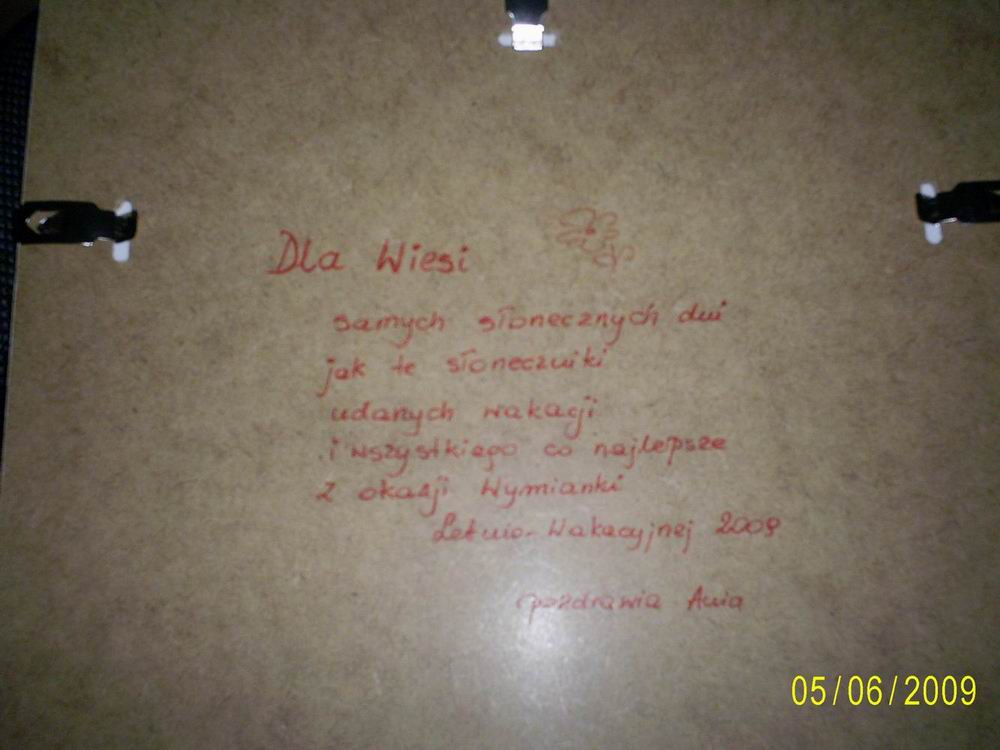 Dla Wiesi
samych słonecznych dni
jak te słoneczniki
udanych wakacji
i wszystkiego co najlepsze
z okazji Wymianki
Letnio-Wakacyjnej 2009
pozdrawia Ania
05/06/2009